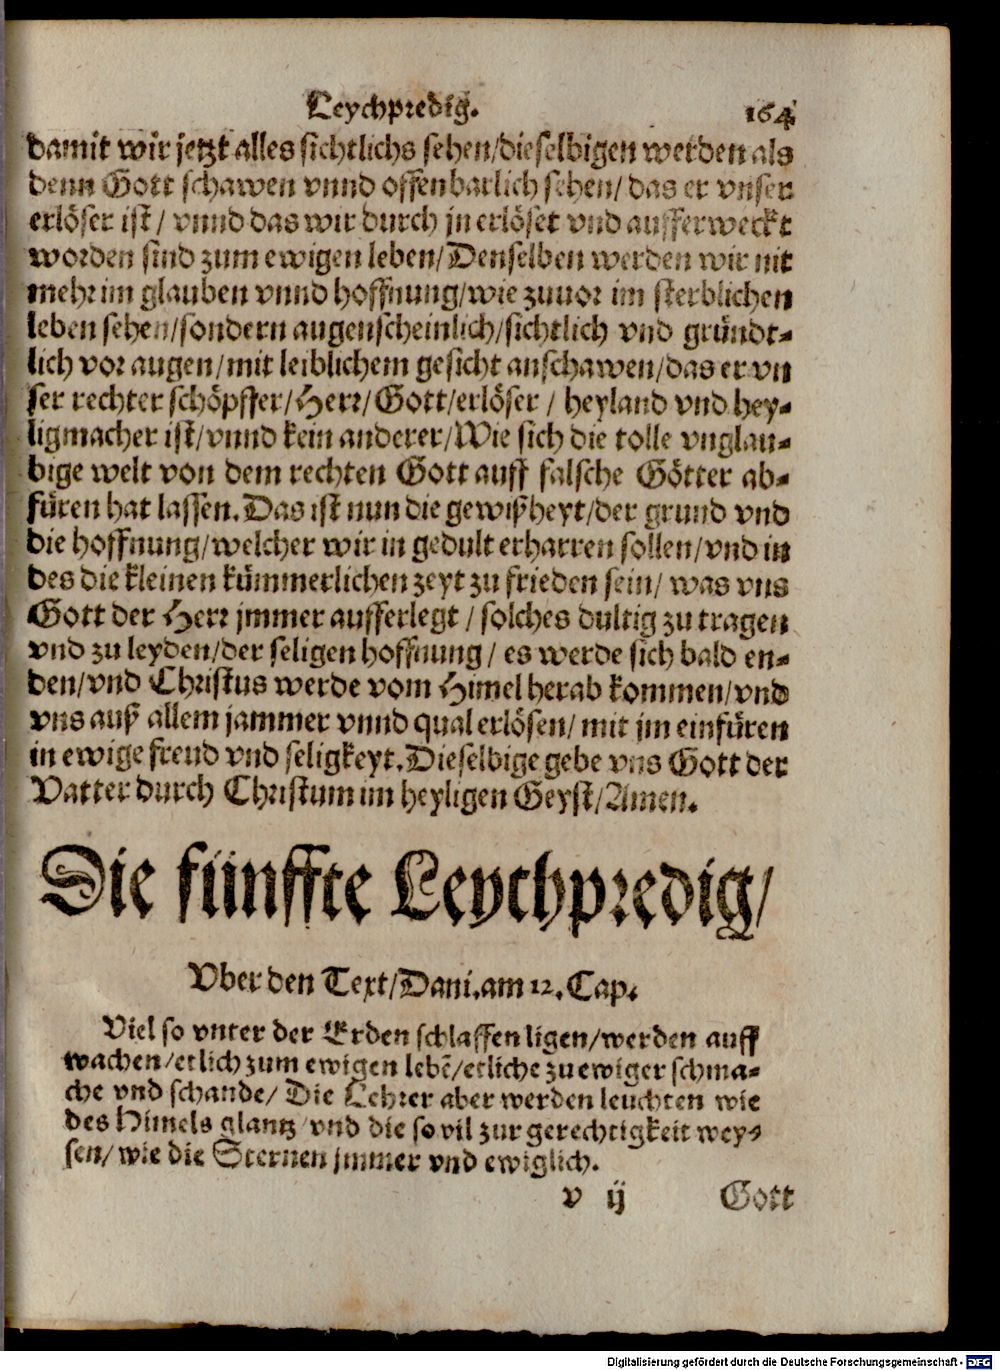 Leychpredig. 164
damit wir jetzt alles sichtlichs sehen/dieselbigen werden als
denn Gott schawen vnnd offenbarlich sehen/ das er vnser
erlöser ist/ vnnd das wir durch jn erlöset vnd aufferweckt
worden sind zum ewigen leben/Denselben werden wir nit
mehr im glauben vnnd hoffnung/wie zuuor im sterblichen
leben sehen/sondern augenscheinlich/sichtlich vnd gründt-
lich vor augen/mit leiblichem gesicht anschawen/das er vn
ser rechter schöpffer/Herr/Gott/erlöser / heyland vnd hey-
ligmacher ist/vnnd kein anderer/Wie sich die tolle vnglau-
bige welt von dem rechten Gott auff falsche Götter ab-
füren hat lassen. Das ist nun die gewißheyt/der grund vnd
die hoffnung/welcher wir in gedult erharren sollen/vnd in
des die kleinen kümmerlichen zeyt zu frieden sein/ was vns
Gott der Herr jmmer aufferlegt / solches dultig zu tragen
vnd zu leyden/der seligen hoffnung / es werde sich bald en-
den/vnd Christus werde vom Himel herab kommen/vnd
vns auß allem jammer vnnd qual erlösen/ mit jm einfüren
in ewige freud vnd seligkeyt. Dieselbige gebe vns Gott der
Vatter durch Christum im heyligen Geyst/Amen.
Die fünffte Leychpredig/
Vber den Text/Dani. am 12. Cap.
Viel so vnter der Erden schlaffen ligen/werden auff
wachen/etlich zum ewigen lebē/etliche zu ewiger schma-
che vnd schande/ Die Lehrer aber werden leuchten wie
des Himels glantz/vnd die so vil zur gerechtigkeit wey-
sen/ wie die Sternen jmmer vnd ewiglich.
v ij Gott
Digitalisierung gefördert durch die Deutsche Forschungsgemeinschaft - DFG